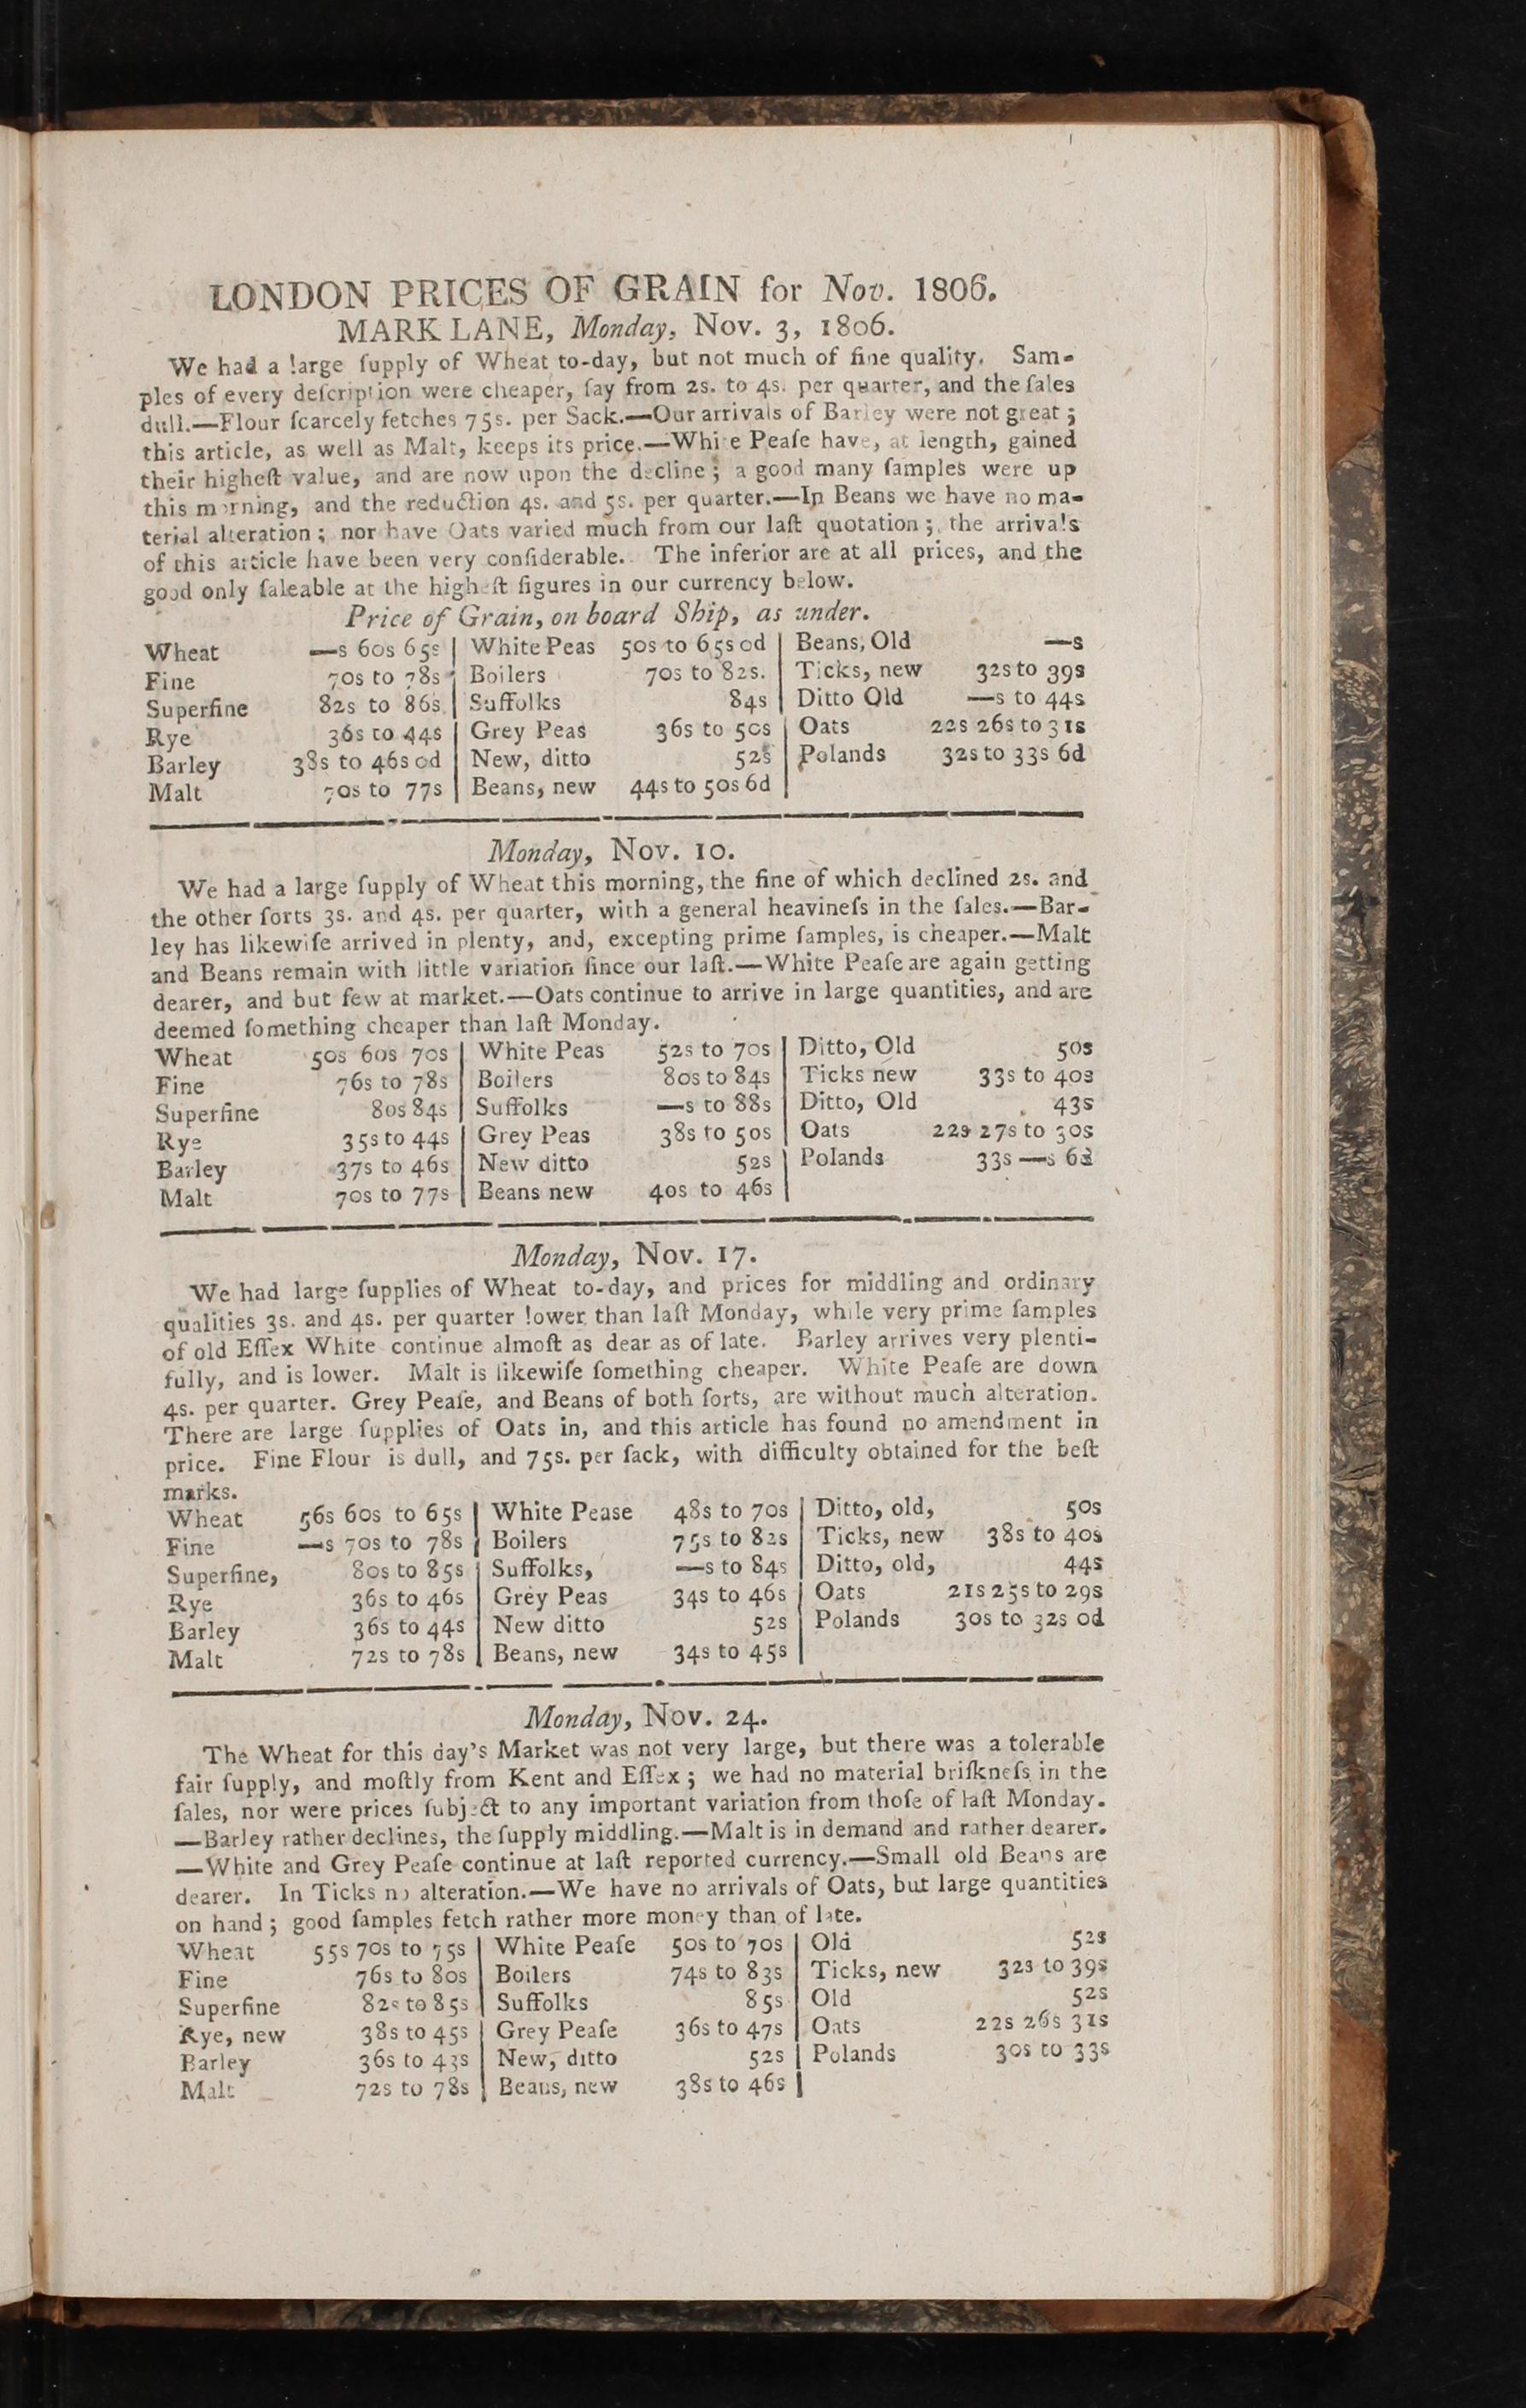 LONDON PRICES OF GRAIN for Nov. 1806.
MARK LANE, Monday, Nov. 3, 1806.
We had a large ſupply of Wheat to-day, but not much of fine quality. Sam-
ples of every deſcription were cheaper, ſay from 2s. to 4s. per quarter, and the ſales
dull.—Flour ſcarcely fetches 75s. per Sack.—Our arrivals of Barley were not great ;
this article, as well as Malt, keeps its price.—White Peaſe have, at length, gained
their higheſt value, and are now upon the decline ; a good many ſamples were up
this morning, and the reduction 4s. and 5s. per quarter.—In Beans we have no ma-
terial alteration ; nor have Oats varied much from our laſt quotation ; the arrivals
of this article have been very conſiderable. The inferior are at all prices, and the
good only ſaleable at the higheſt figures in our currency below.
Price of Grain, on board Ship, as under.
Wheat —s 60s 65s | White Peas 50s to 65s 0d | Beans, Old —s
Fine 70s to 78s | Boilers 70s to 82s. | Ticks, new 32s to 39s
Superfine 82s to 86s | Suffolks 84s | Ditto Old —s to 44s
Rye 36s to 44s | Grey Peas 36s to 50s | Oats 22s 26s to 31s
Barley 38s to 46s 0d | New, ditto 52s | Polands 32s to 33s 6d
Malt 70s to 77s | Beans, new 44s to 50s 6d |
Monday, Nov. 10.
We had a large ſupply of Wheat this morning, the fine of which declined 2s. and
the other ſorts 3s. and 4s. per quarter, with a general heavineſs in the ſales.—Bar-
ley has likewiſe arrived in plenty, and, excepting prime ſamples, is cheaper.—Malt
and Beans remain with little variation ſince our laſt.—White Peaſe are again getting
dearer, and but few at market.—Oats continue to arrive in large quantities, and are
deemed ſomething cheaper than laſt Monday.
Wheat 50s 60s 70s | White Peas 52s to 70s | Ditto, Old 50s
Fine 76s to 78s | Boilers 80s to 84s | Ticks new 33s to 40s
Superfine 80s 84s | Suffolks —s to 88s | Ditto, Old 43s
Rye 35s to 44s | Grey Peas 38s to 50s | Oats 22s 27s to 30s
Barley 37s to 46s | New ditto 52s | Polands 33s —s 6d
Malt 70s to 77s | Beans new 40s to 46s |
Monday, Nov. 17.
We had large ſupplies of Wheat to-day, and prices for middling and ordinary
qualities 3s. and 4s. per quarter lower than laſt Monday, while very prime ſamples
of old Eſſex White continue almoſt as dear as of late. Barley arrives very plenti-
fully, and is lower. Malt is likewiſe ſomething cheaper. White Peaſe are down
4s. per quarter. Grey Peaſe, and Beans of both ſorts, are without much alteration.
There are large ſupplies of Oats in, and this article has found no amendment in
price. Fine Flour is dull, and 75s. per ſack, with difficulty obtained for the beſt
marks.
Wheat 56s 60s to 65s | White Pease 48s to 70s | Ditto, old, 50s
Fine —s 70s to 78s | Boilers 75s to 82s | Ticks, new 38s to 40s
Superfine, 80s to 85s | Suffolks, —s to 84s | Ditto, old, 44s
Rye 36s to 46s | Grey Peas 34s to 46s | Oats 21s 25s to 29s
Barley 36s to 44s | New ditto 52s | Polands 30s to 32s 0d
Malt 72s to 78s | Beans, new 34s to 45s |
Monday, Nov. 24.
The Wheat for this day's Market was not very large, but there was a tolerable
fair ſupply, and moſtly from Kent and Eſſex ; we had no material briſkneſs in the
ſales, nor were prices ſubject to any important variation from thoſe of laſt Monday.
—Barley rather declines, the ſupply middling.—Malt is in demand and rather dearer.
—White and Grey Peaſe continue at laſt reported currency.—Small old Beans are
dearer. In Ticks no alteration.—We have no arrivals of Oats, but large quantities
on hand ; good ſamples fetch rather more money than of late.
Wheat 55s 70s to 75s | White Peaſe 50s to 70s | Old 52s
Fine 76s to 80s | Boilers 74s to 83s | Ticks, new 32s to 39s
Superfine 82s to 85s | Suffolks 85s | Old 52s
Rye, new 38s to 45s | Grey Peaſe 36s to 47s | Oats 22s 26s 31s
Barley 36s to 43s | New, ditto 52s | Polands 30s to 33s
Malt 72s to 78s | Beans, new 38s to 46s |